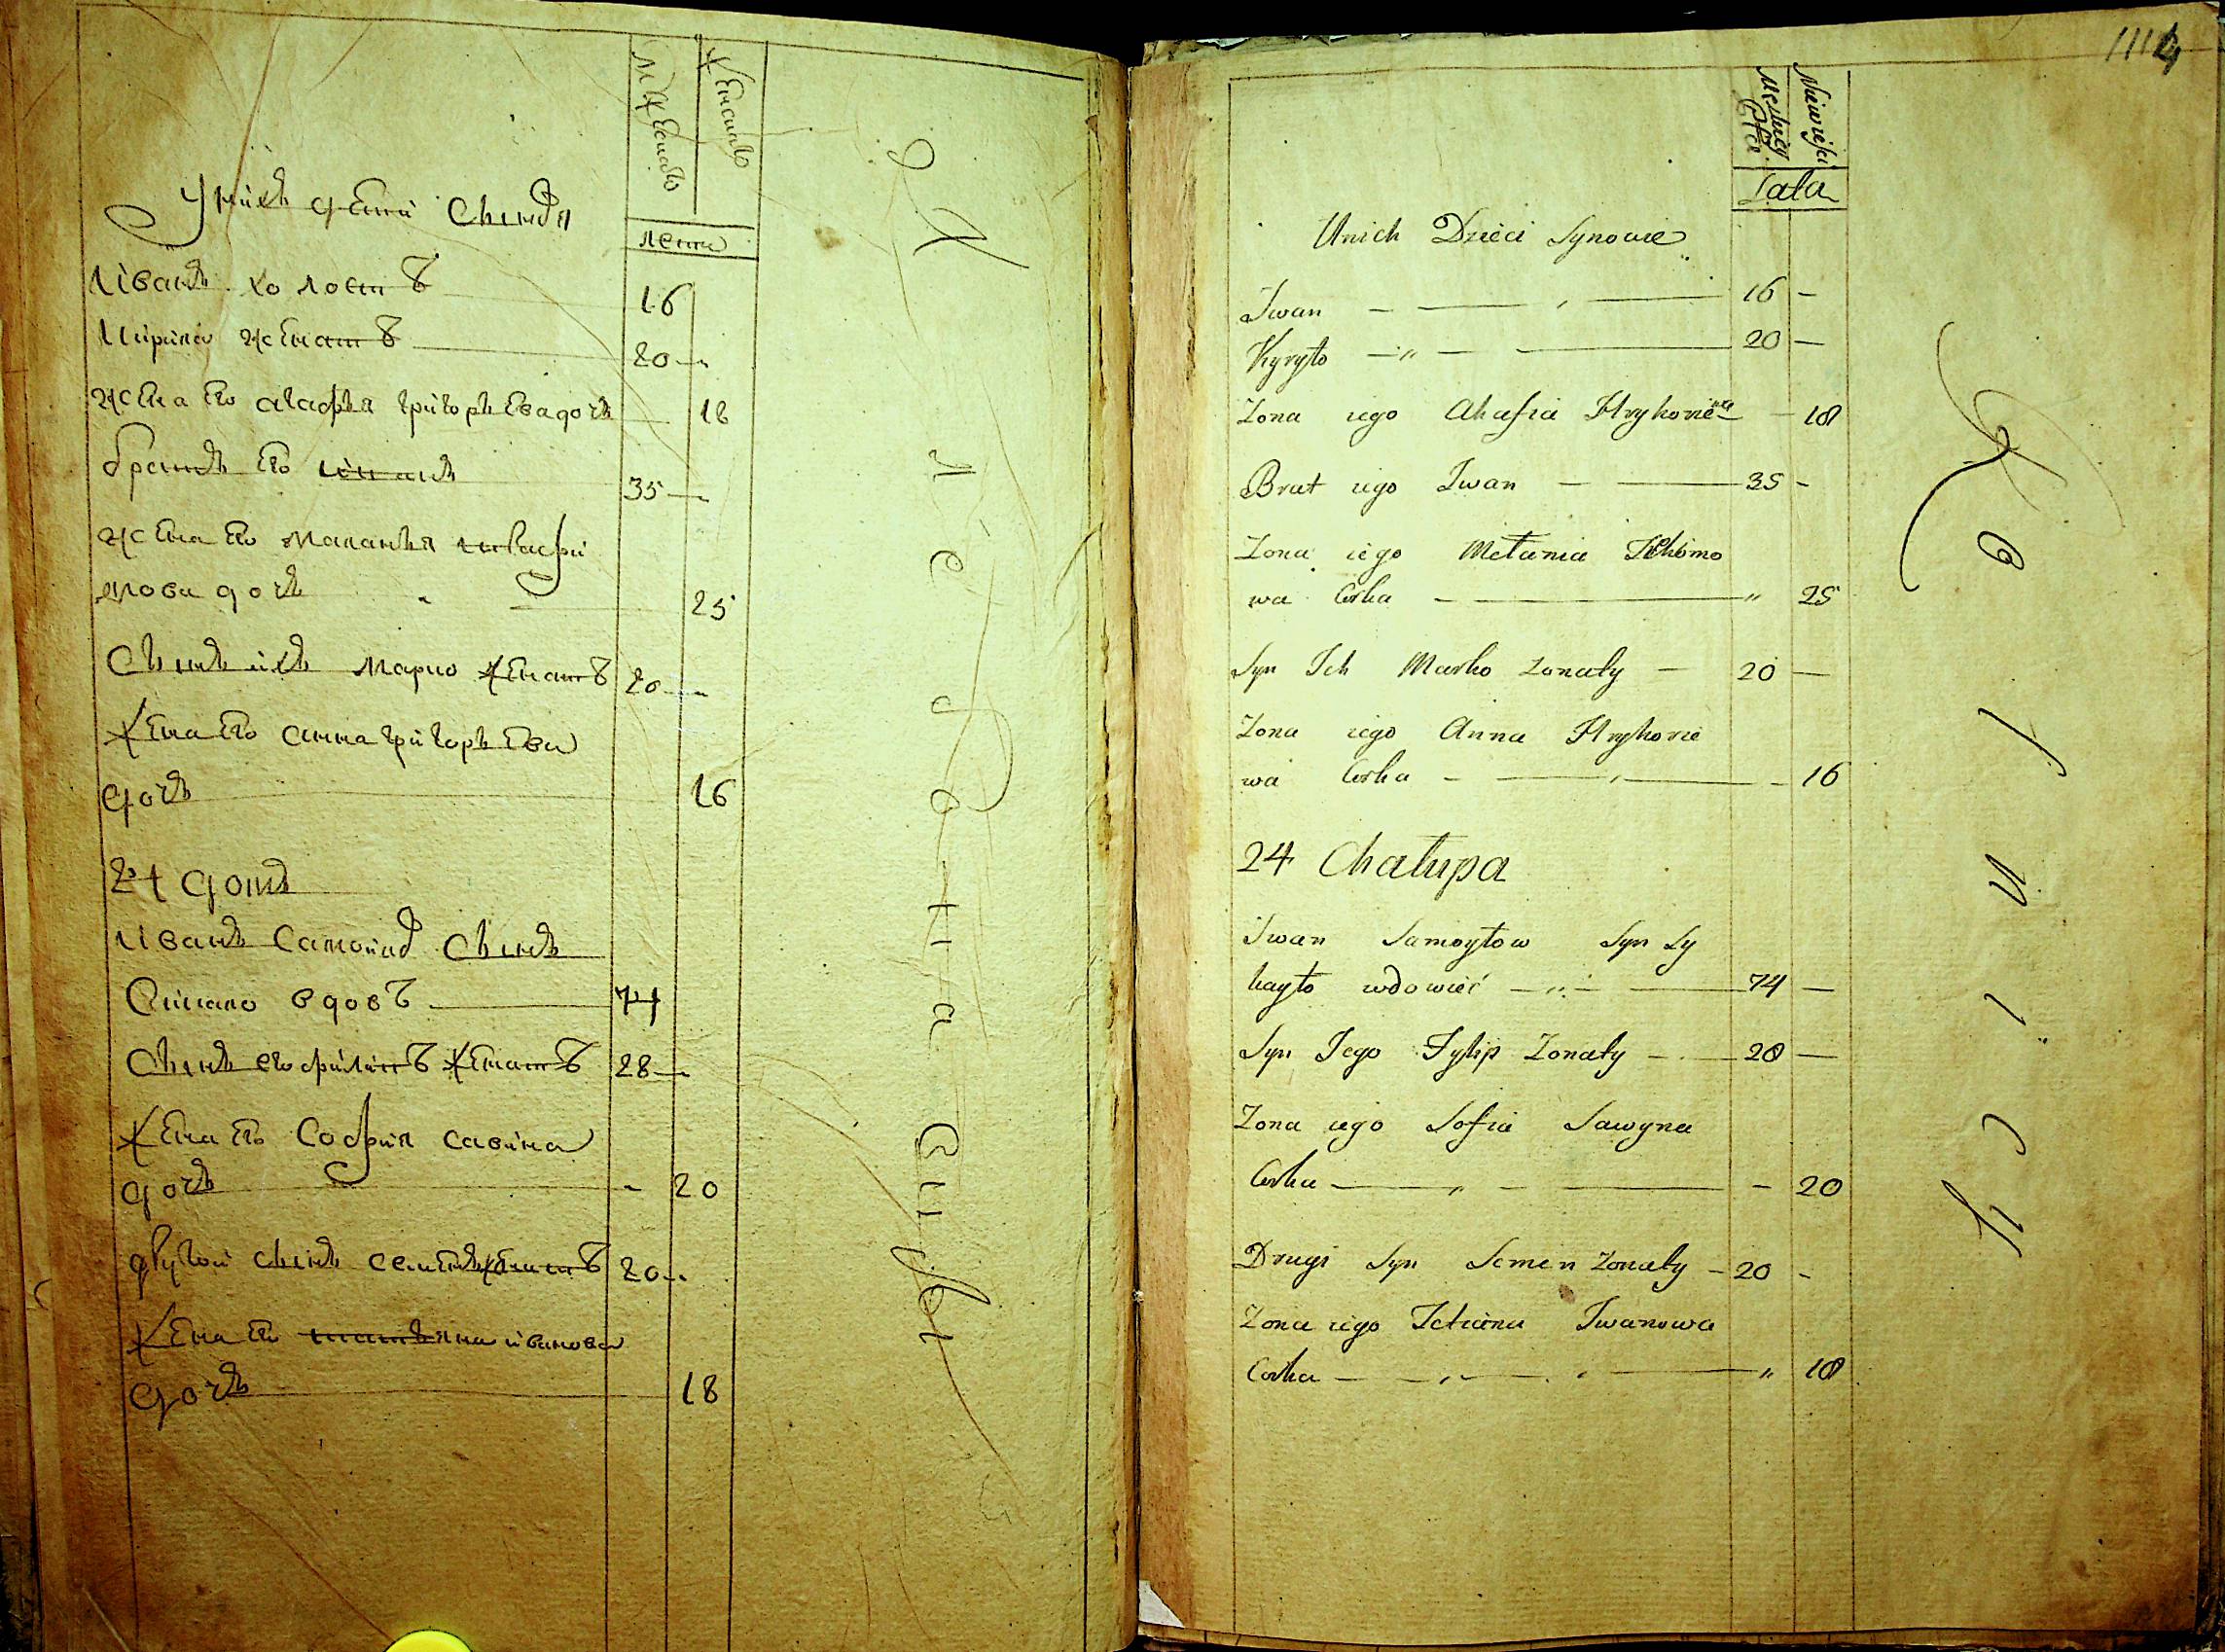 Мужеска
Женска
лета
У них дети Сыновя
Иванъ холостъ 16
Кирило женатъ 20
жена его агафья григорьева дочь 18
братъ его иванъ 35
жена его маланья
мова дочь 25
Сынъ ихъ марко женатъ 20
жена его анна григорьева
дочь 16
24 домъ
Иванъ Самоилов Сынъ
вдовъ 74
Сынъ его филипъ женатъ 28
жена его София савина
дочь 20
другои сынъ семенъ женатъ 20
жена его татьяна иванова
дочь 18
1114
Męskiey Płce
Niewieści
Lata
Unich Dzieci Synowie
Iwan 16 —
Kyryło 20 —
Zona iego Ahafia Hryhoriewa — 18
Brat iego Iwan — 35 -
Zona iego Mełania
wa Corka — 25
Syn Ich Marko Zonaty — 20 —
Zona iego Anna Hryhorie
wa Corka — 16
24 Chałupa
Iwan Samoyłow Syn Sy
kayło wdowieć — 74 —
Syn Iego Fylip Zonaty — 28 —
Zona iego Sofia Sawyna
Corka — 20
Drugi Syn Semen Zonaty - 20 -
Zona iego Tetiana Iwanowa
Corka — 18